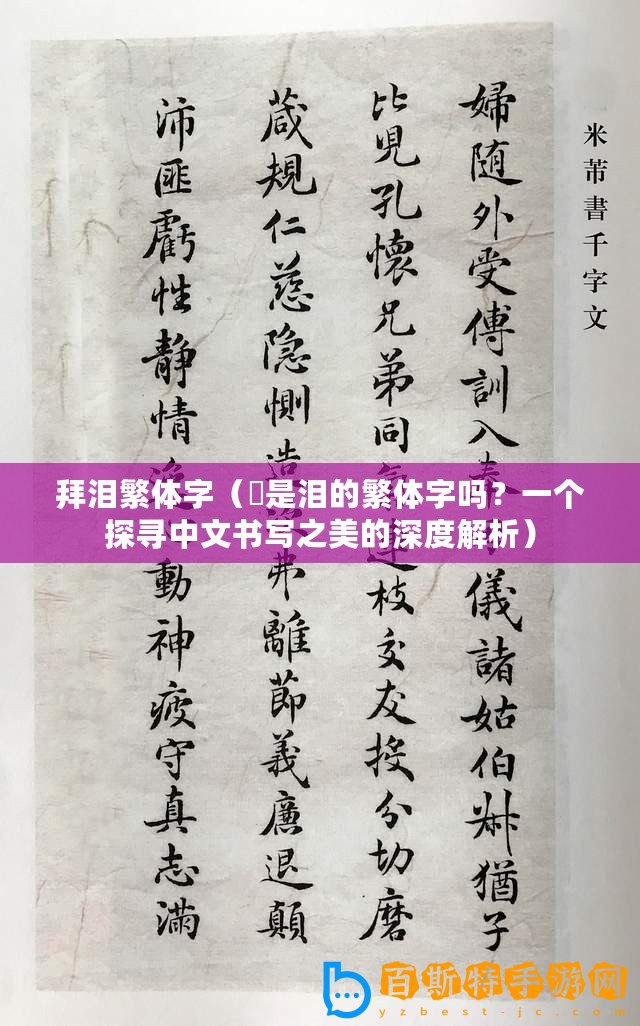 米芾書千字文
婦随外受傅訓入奉儀諸姑伯叔猶子
比兒孔懷兄弟同枝交友投分切磨
箴規仁慈隐惻造弗離節義廉退顛
沛匪虧性静情動神疲守真志滿
拜泪繁体字（是泪的繁体字吗？一个
探寻中文书写之美的深度解析）
百斯特手游网
yzbest-jc.com